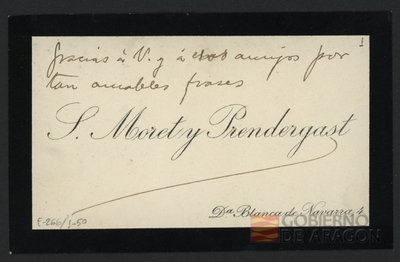 1
Gracias á V. y á esos amigos por
tan amables frases
S. Moret y Prendergast
Dª Blanca de Navarra, 4
F-266/1-50
GOBIERNO
DE ARAGON